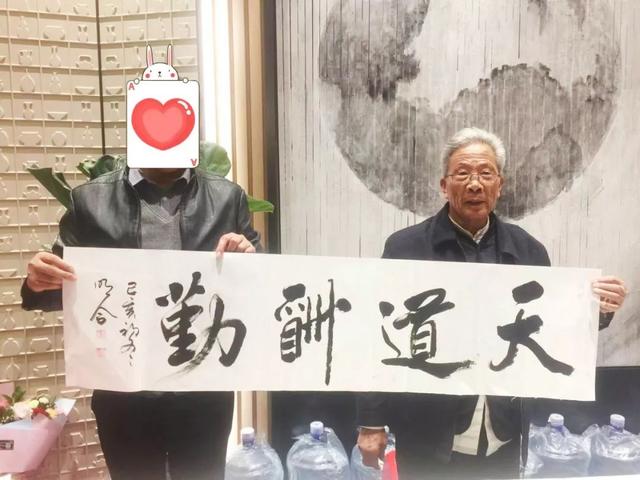 天道酬勤
己亥初冬
明合
A
A